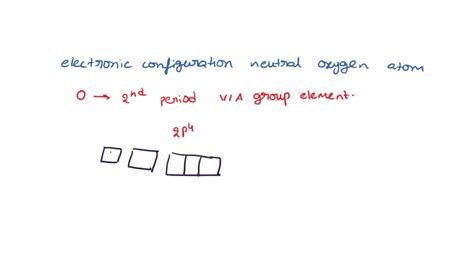 electronic configuration neutral oxygen atom
O → 2nd period VIA group element.
2p4